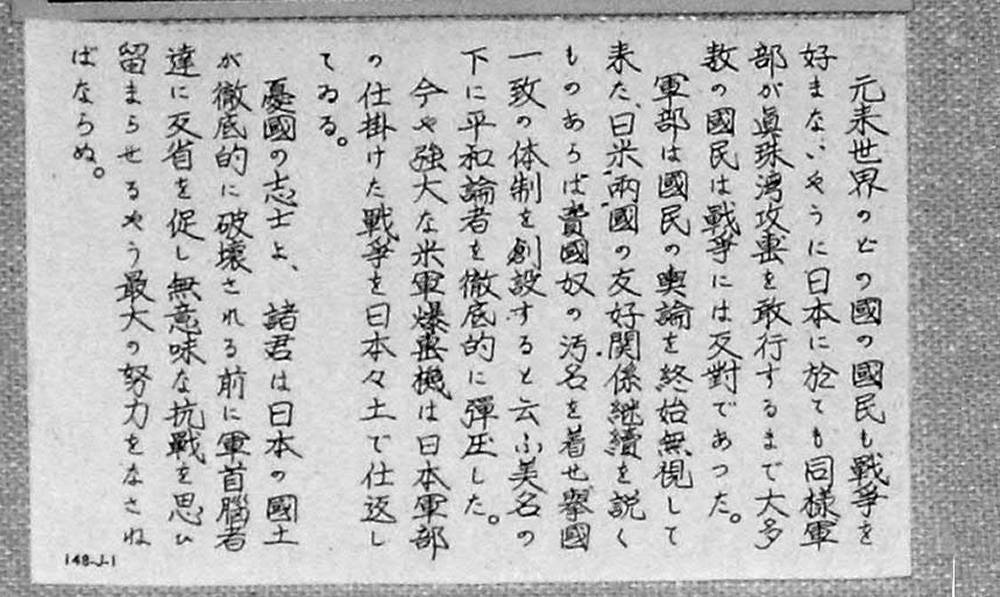 元来世界のどの國の國民も戰爭を
好まないやうに日本に於ても同樣軍
部が眞珠湾攻擊を敢行するまで大多
数の國民は戰爭には反對であつた。
軍部は國民の輿論を終始無視して
来た、日米兩國の友好関係継續を説く
ものあらば賣國奴の汚名を着せ擧國
一致の体制を創設すると云ふ美名の
下に平和論者を徹底的に彈圧した。
今や強大な米軍爆擊機は日本軍部
の仕掛けた戰爭を日本々土で仕返し
てゐる。
憂國の志士よ、諸君は日本の國土
が徹底的に破壊される前に軍首腦者
達に反省を促し無意味な抗戰を思ひ
留まらせるやう最大の努力をなさね
ばならぬ。
148-J-1